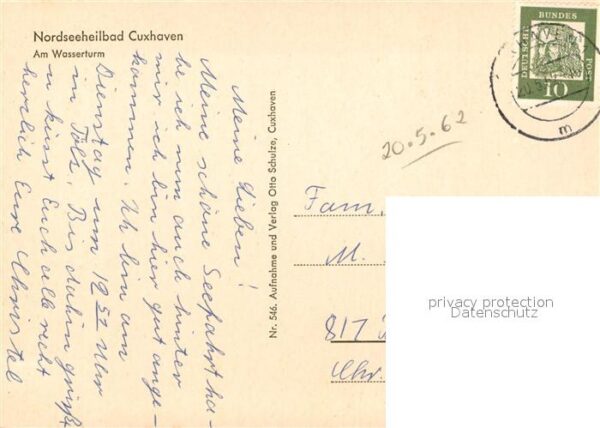 Nordseeheilbad Cuxhaven
Am Wasserturm
Meine Lieben!
Meine schöne Seefahrt ha-
be ich nun auch hinter
mir, ich bin hier gut ange-
kommen. Ich bin am
Dienstag um 12 52 Uhr
in Tölz. Bis dahin grüßt
u. küsst Euch alle recht
herzlich Eure Christel
Nr. 546. Aufnahme und Verlag Otto Schulze, Cuxhaven
DEUTSCHE
BUNDES
POST
10
m
20.5.62
Fam.
M.
817
Chr.
privacy protection
Datenschutz